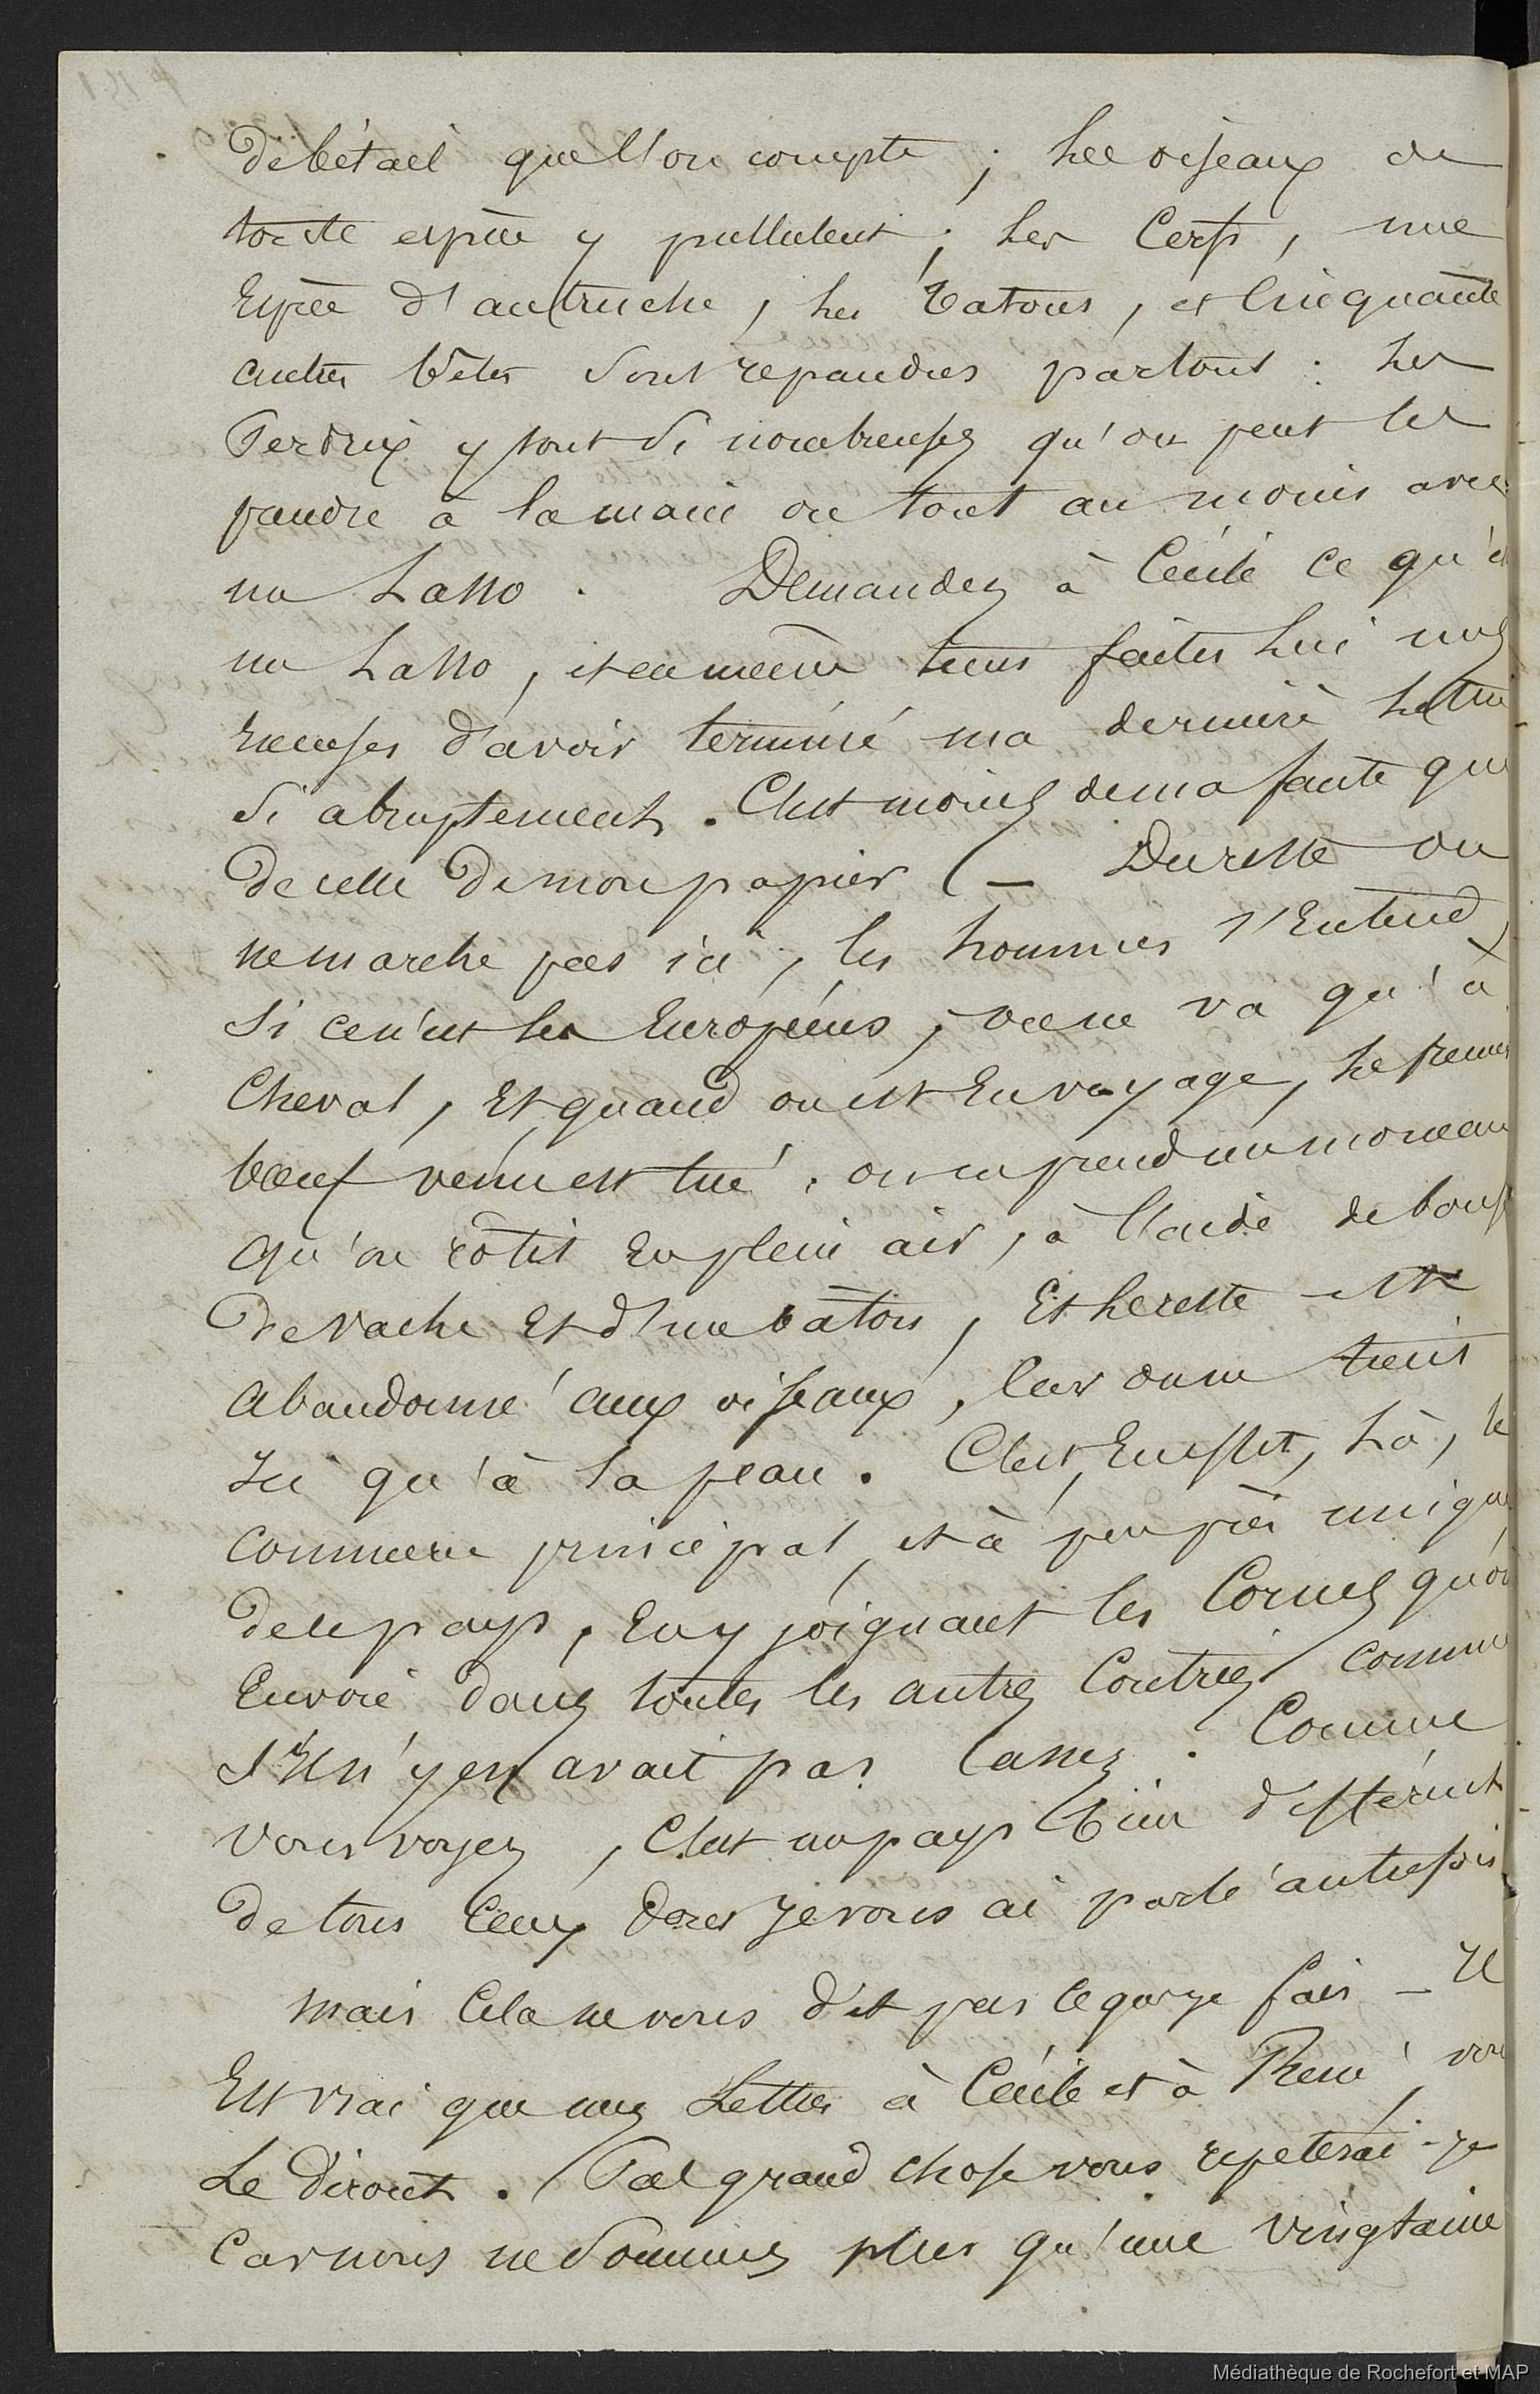 de bétail que l'on compte ; les oiseaux de
toute espèce y pullulent ; les Cerfs, une
Espèce d'autruche, les Tatous, et Cinquante
autres bêtes sont repandues partout : les
Perdrix y sont si nombreuses qu'on peut les
prendre à la main ou tout au moins avec
un Lasso . Demandez à Cécile ce qu'e
un Lasso, et en même tems faites lui mes
excuses d'avoir terminé ma dernière lettre
si abruptement. C'est moins de ma faute que
de celle de mon papier (– Du reste on
ne marche pas ici, les hommes s'Entend,
si ce n'est les Européens ; on ne va qu'à
Cheval, Et quand on est En voyage, le premier
bœuf venu est tué, on en prend un morceau
qu'on rôtit En plein air, à l'aide de bouse
de vache Et d'une bâton, Et le reste est
abandonné aux oiseaux, car on ne tient
Ici qu'à la peau. C'est, En effet, là, le
commerce principal, et à peu près unique
de ce pays, En y joignant les Cornes qu'on
Envoie dans toutes les autres Contrées comme
s'Il n'y en avait pas assez . Comme
vous voyez, C'est un pays bien différent
de tous Ceux dont je vous ai parlé autrefois
mais Cela ne vous dit pas ce que je fais – Il
Est vrai que mes Lettres à Cécile et à René, vous
Le diront . Pas grand chose vous repeterai-je
Car nous ne sommes plus qu'une vingtaine
Médiathèque de Rochefort et MAP